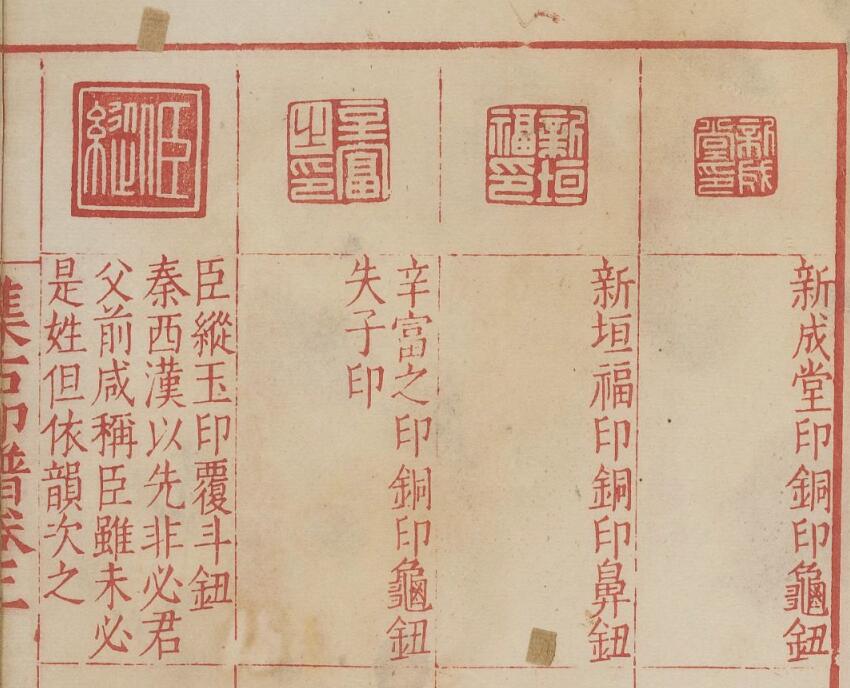 新成堂印
新成堂印銅印龜鈕
新垣福印
新垣福印銅印鼻鈕
辛富之印
辛富之印銅印龜鈕
失子印
臣縱
臣縱玉印覆斗鈕
秦西漢以先非必君
父前咸稱臣雖未必
是姓但依韻次之
集古印譜卷三